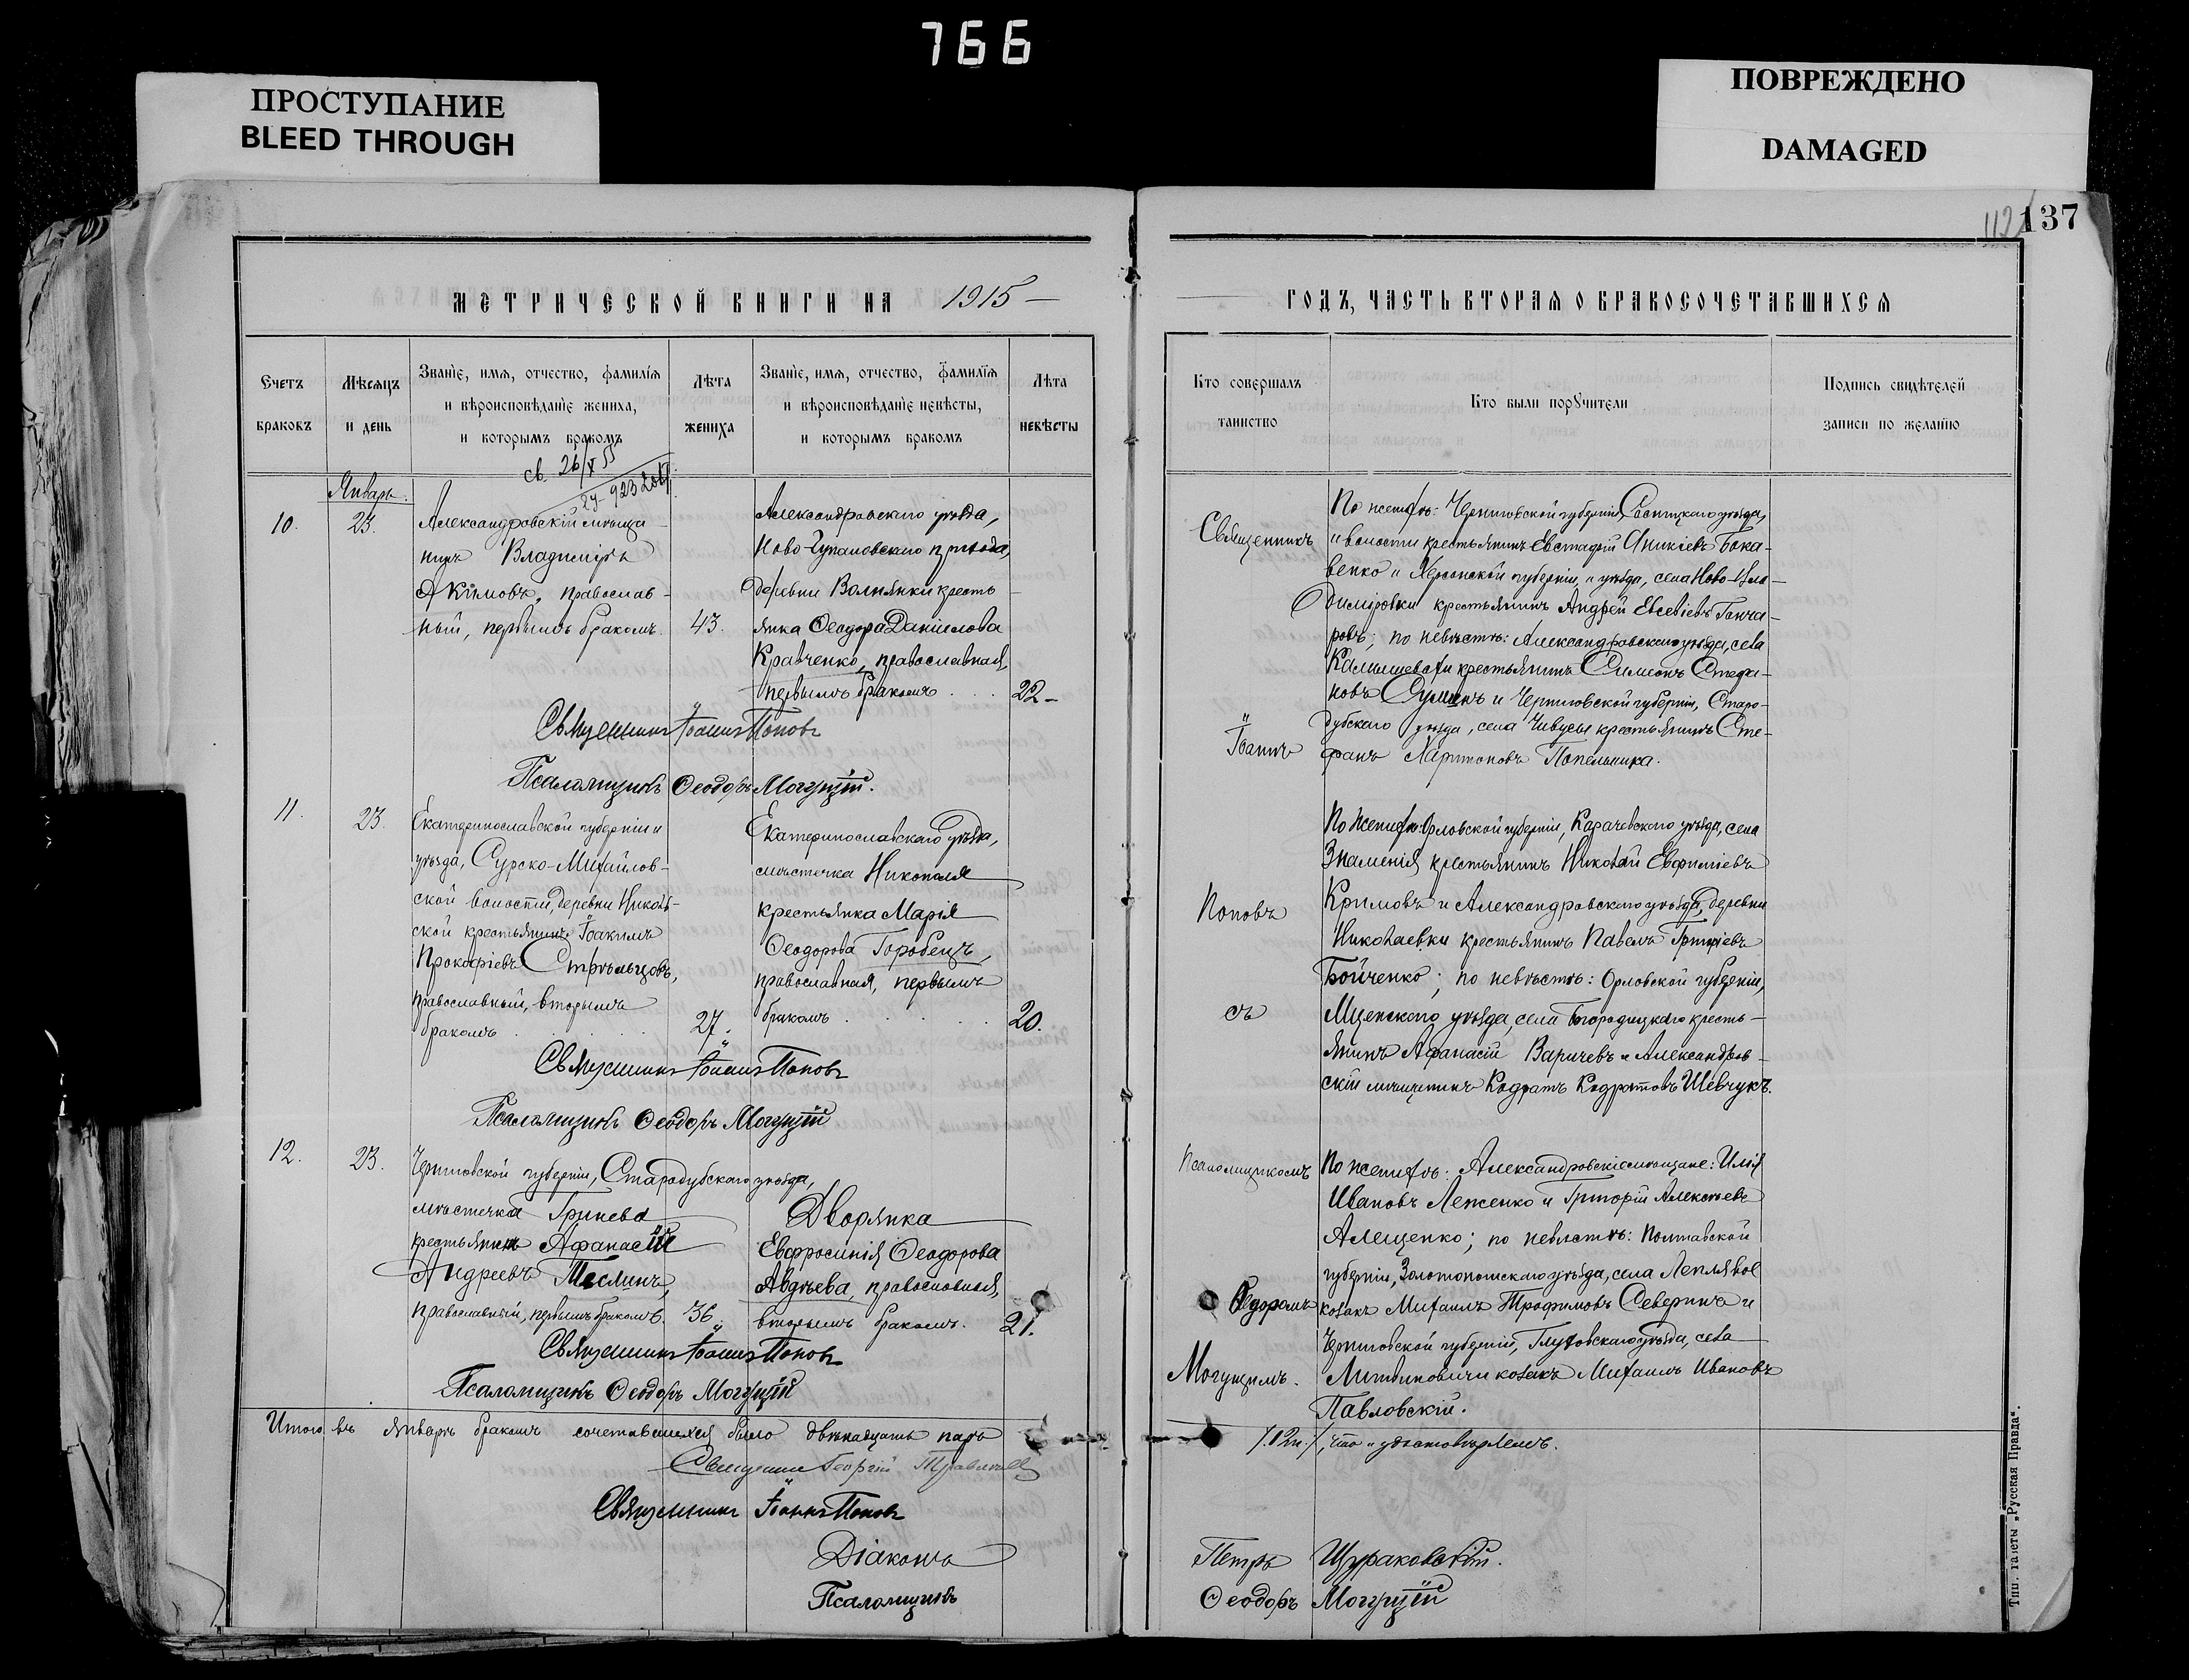 766
ПРОСТУПАНИЕ
BLEED THROUGH
ПОВРЕЖДЕНО
DAMAGED
112
137
МЕТРИЧЕСКОЙ КНИГИ НА 1915
ГОДЪ, ЧАСТЬ ВТОРАЯ О БРАКОСОЧЕТАВШИХСЯ
Счетъ браковъ
Мѣсяцъ и день
Званіе, имя, отчество, фамилія
и вѣроисповѣданіе жениха,
и которымъ бракомъ
Лѣта жениха
Званіе, имя, отчество, фамилія
и вѣроисповѣданіе невѣсты,
и которымъ бракомъ
Лѣта невѣсты
Кто совершалъ таинство
Кто были порꙋчители
Подпись свидѣтелей
записи по желанію
св. 26/X 55
Январь.
10.
23.
Александровскій мѣща-
нинъ Владиміръ
Акимовъ, православ-
ный, первымъ бракомъ.
43.
Александровскаго уѣзда,
прихода,
деревни Волнянки кресть-
янка Ѳеодора Даніилова
Кравченко, православная,
первымъ бракомъ
22
Священникъ Іоаннъ Поповъ
Псаломщикъ Ѳеодоръ Могущій.
Священникъ
Іоаннъ
По женихѣ: Черниговской губерніи, Сосницкаго уѣзда,
и волости крестьянинъ Евстафій Іоникіевъ Бока-
венко и Херсонской губерніи, и уѣзда, села Ново-Вла-
диміровки крестьянинъ Андрей Евсевіевъ Гонча-
ровъ; по невѣстѣ: Александровскаго уѣзда, села
Камышевахи крестьянинъ Симеонъ Стефа-
новъ и Черниговской губерніи, Старо-
дубскаго уѣзда, села Чивусы крестьянинъ Сте-
фанъ Харитоновъ Попельника.
11.
23.
Екатеринославской губерніи и
уѣзда, Сурско-Михайлов-
ской волости, деревни Николь-
ской крестьянинъ Іоакимъ
Прокофіевъ Стрѣльцовъ,
православный, вторымъ
бракомъ
27.
Екатеринославскаго уѣзда,
мѣстечка Никополя
крестьянка Марія
Ѳеодорова Горобецъ,
православная, первымъ
бракомъ
20.
Священникъ Іоаннъ Поповъ
Псаломщикъ Ѳеодоръ Могущій
Поповъ
съ
По женихѣ: Орловской губерніи, Карачевскаго уѣзда, села
Знаменія крестьянинъ Николай Евфиміевъ
Кримовъ и Александровскаго уѣзда, деревни
Николаевки крестьянинъ Павелъ Григоріевъ
Бойченко; по невѣстѣ: Орловской губерніи,
Мценскаго уѣзда, села Богородицкаго кресть-
янинъ Афанасій Варичевъ и Александров-
скій мѣщанинъ Кодратъ Кодратовъ Шевчукъ.
12.
23.
Черниговской губерніи, Стародубскаго уѣзда,
мѣстечка Гринева
крестьянинъ Афанасій
Андреевъ Теслинъ,
православный, первымъ бракомъ.
36
Дворянка
Евфросинія Ѳеодорова
Авдѣева, православная,
вторымъ бракомъ.
21.
Священникъ Іоаннъ Поповъ
Псаломщикъ Ѳеодоръ Могущій
Псаломщикомъ
Ѳеодоромъ
Могущимъ.
По женихѣ: Александровскіе мѣщане: Илія
Ивановъ Леженко и Григорій Алексѣевъ
Алещенко; по невѣстѣ: Полтавской
губерніи, Золотоношскаго уѣзда, села Леплявое
козакъ Михаилъ Трофимовъ Северинъ и
Черниговской губерніи, Глуховскаго уѣзда, села
Литвиновичи козакъ Михаилъ Ивановъ
Павловскій.
Итого въ январѣ бракомъ сочетавшихся было двѣнадцать паръ /12 п./, что и удостовѣряемъ.
Священникъ Георгій
Священникъ Іоаннъ Поповъ
Діаконъ Петръ Щураковскій.
Псаломщикъ Ѳеодоръ Могущій
Тип. газеты „Русская Правда“.